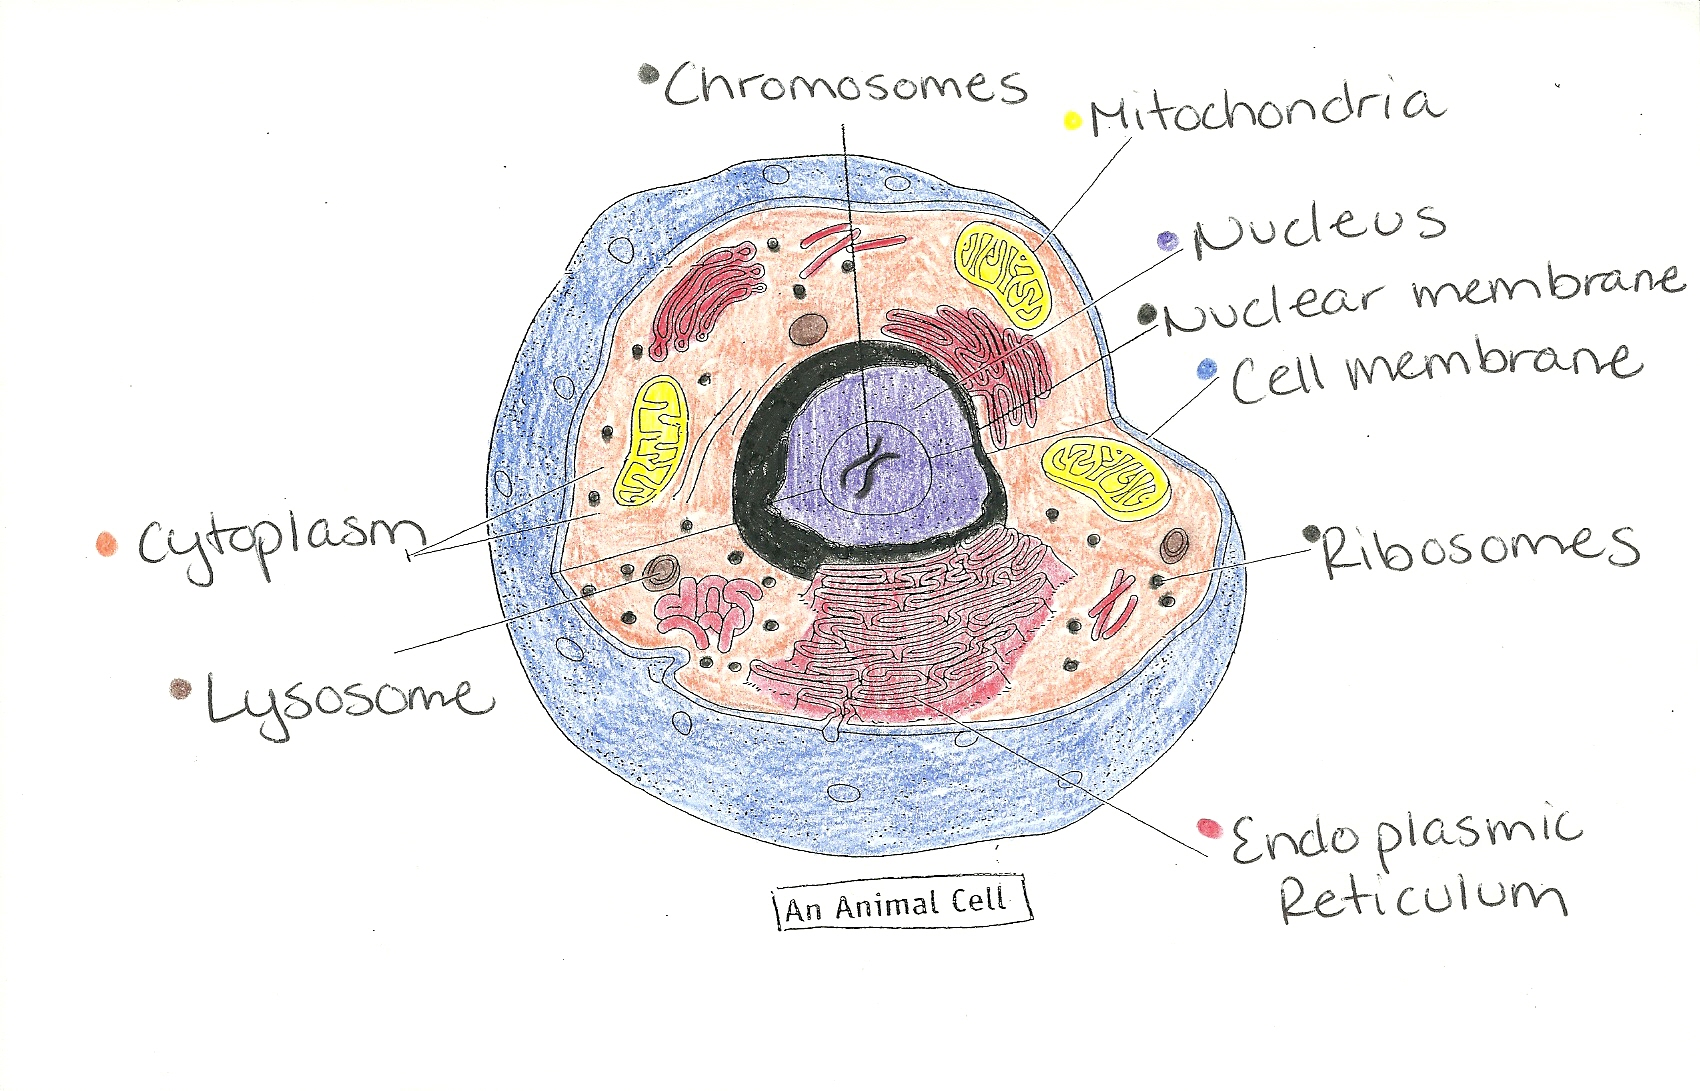 Chromosomes
Mitochondria
Nucleus
Nuclear membrane
Cell membrane
Cytoplasm
Ribosomes
Lysosome
Endoplasmic
Reticulum
An Animal Cell